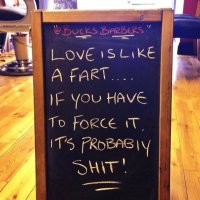 "DUCKS BARBERS"
LOVE IS LIKE
A FART....
IF YOU HAVE
TO FORCE IT,
IT'S PROBABLY
SHIT!